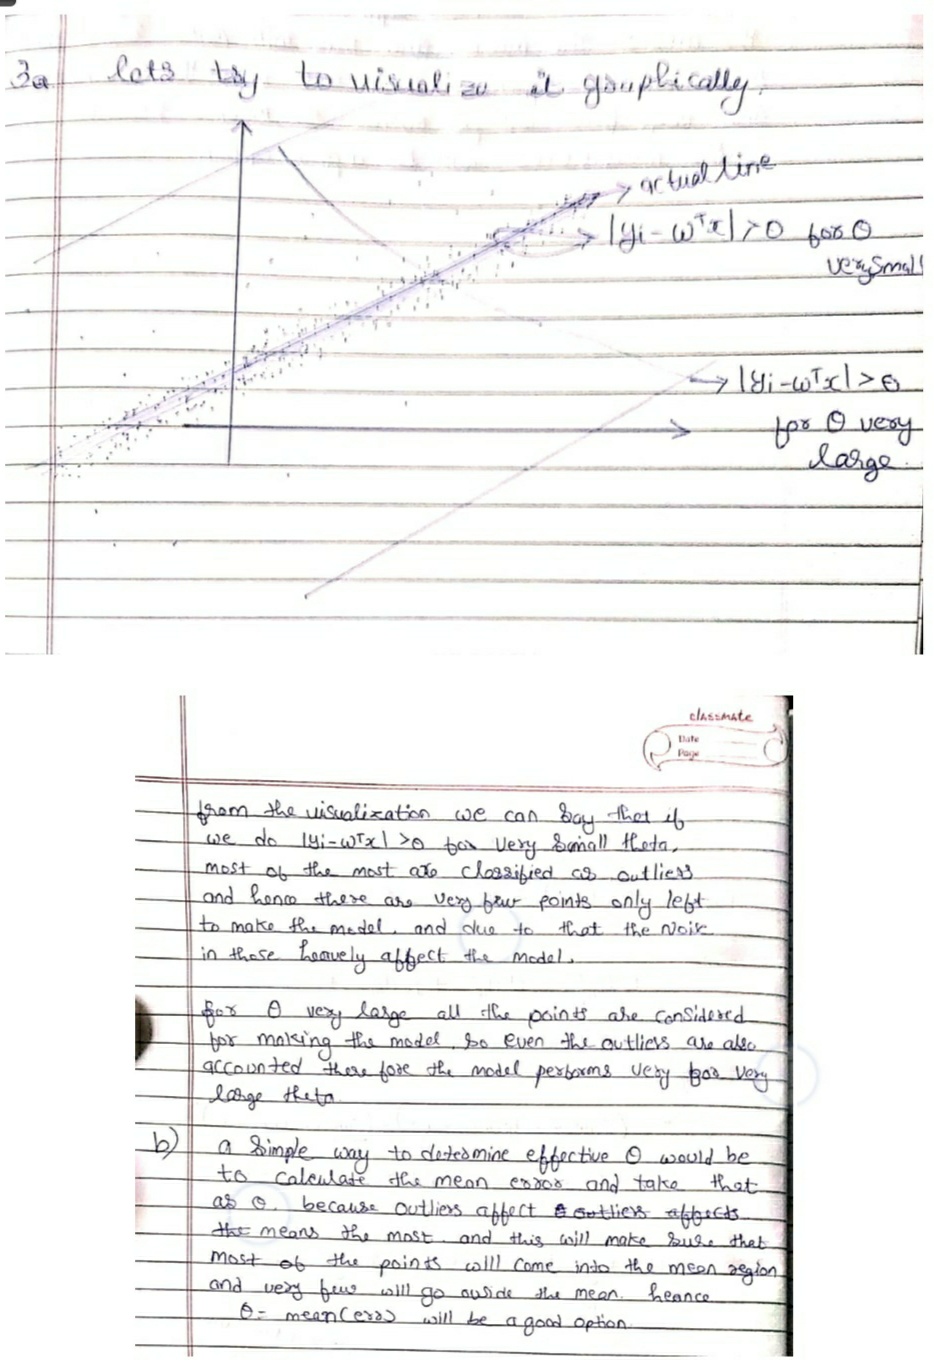 3a lets try to visualize it graphically.
actual line
|yi - wᵀx| > θ for θ
very small
|yi - wᵀx| > θ
for θ very
large.
classmate
Date
Page
from the visualization we can say that if
we do |yi - wᵀx| > θ for very small theta,
most of the most are classified as outliers
and hence there are very few points only left
to make the model. and due to that the Noise
in those heavely affect the model.
for θ very large all the points are considered
for making the model. so even the outliers are also
accounted there fore the model performs very poor very
large theta
b) a simple way to determine effective θ would be
to calculate the mean error and take that
as θ. because outliers affect outliers affects
the means the most. and this will make sure that
most of the points will come into the mean region
and very few will go ouside the mean. heance
θ = mean(err) will be a good option.